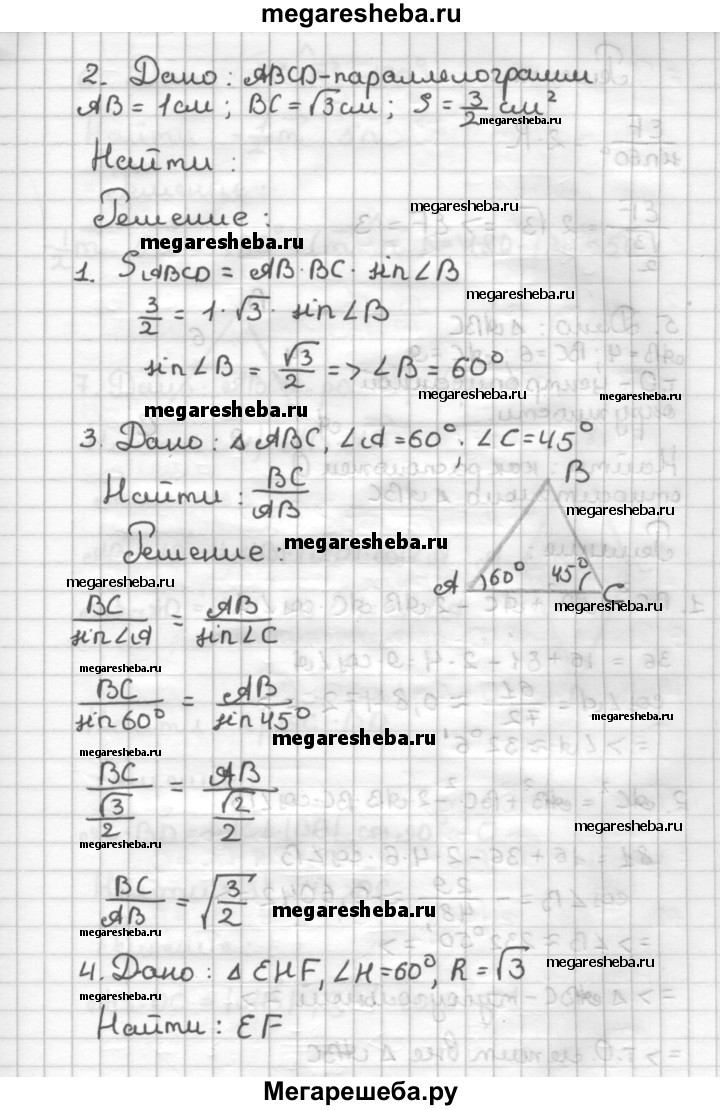 megaresheba.ru
2. Дано: ABCD-параллелограмм
AB = 1см; BC = √3см; S = 3/2 см²
megaresheba.ru
Найти:
megaresheba.ru
Решение:
megaresheba.ru
1. S ABCD = AB · BC · sin∠B
megaresheba.ru
3/2 = 1 · √3 · sin∠B
sin∠B = √3/2 => ∠B = 60°
megaresheba.ru
megaresheba.ru
megaresheba.ru
3. Дано: Δ ABC, ∠A = 60°, ∠C = 45°
Найти: BC/AB
B
megaresheba.ru
Решение:
megaresheba.ru
megaresheba.ru
A 60° 45° C
megaresheba.ru
BC/sin∠A = AB/sin∠C
megaresheba.ru
megaresheba.ru
BC/sin60° = AB/sin45°
megaresheba.ru
megaresheba.ru
megaresheba.ru
BC/(√3/2) = AB/(√2/2)
megaresheba.ru
megaresheba.ru
megaresheba.ru
BC/AB = √(3/2)
megaresheba.ru
megaresheba.ru
4. Дано: Δ EHF, ∠H = 60°, R = √3
megaresheba.ru
Найти: EF
megaresheba.ru
Мегарешеба.ру